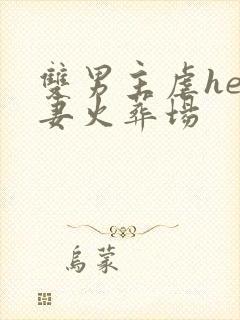 双男主虐he
妻火葬场
乌蒙